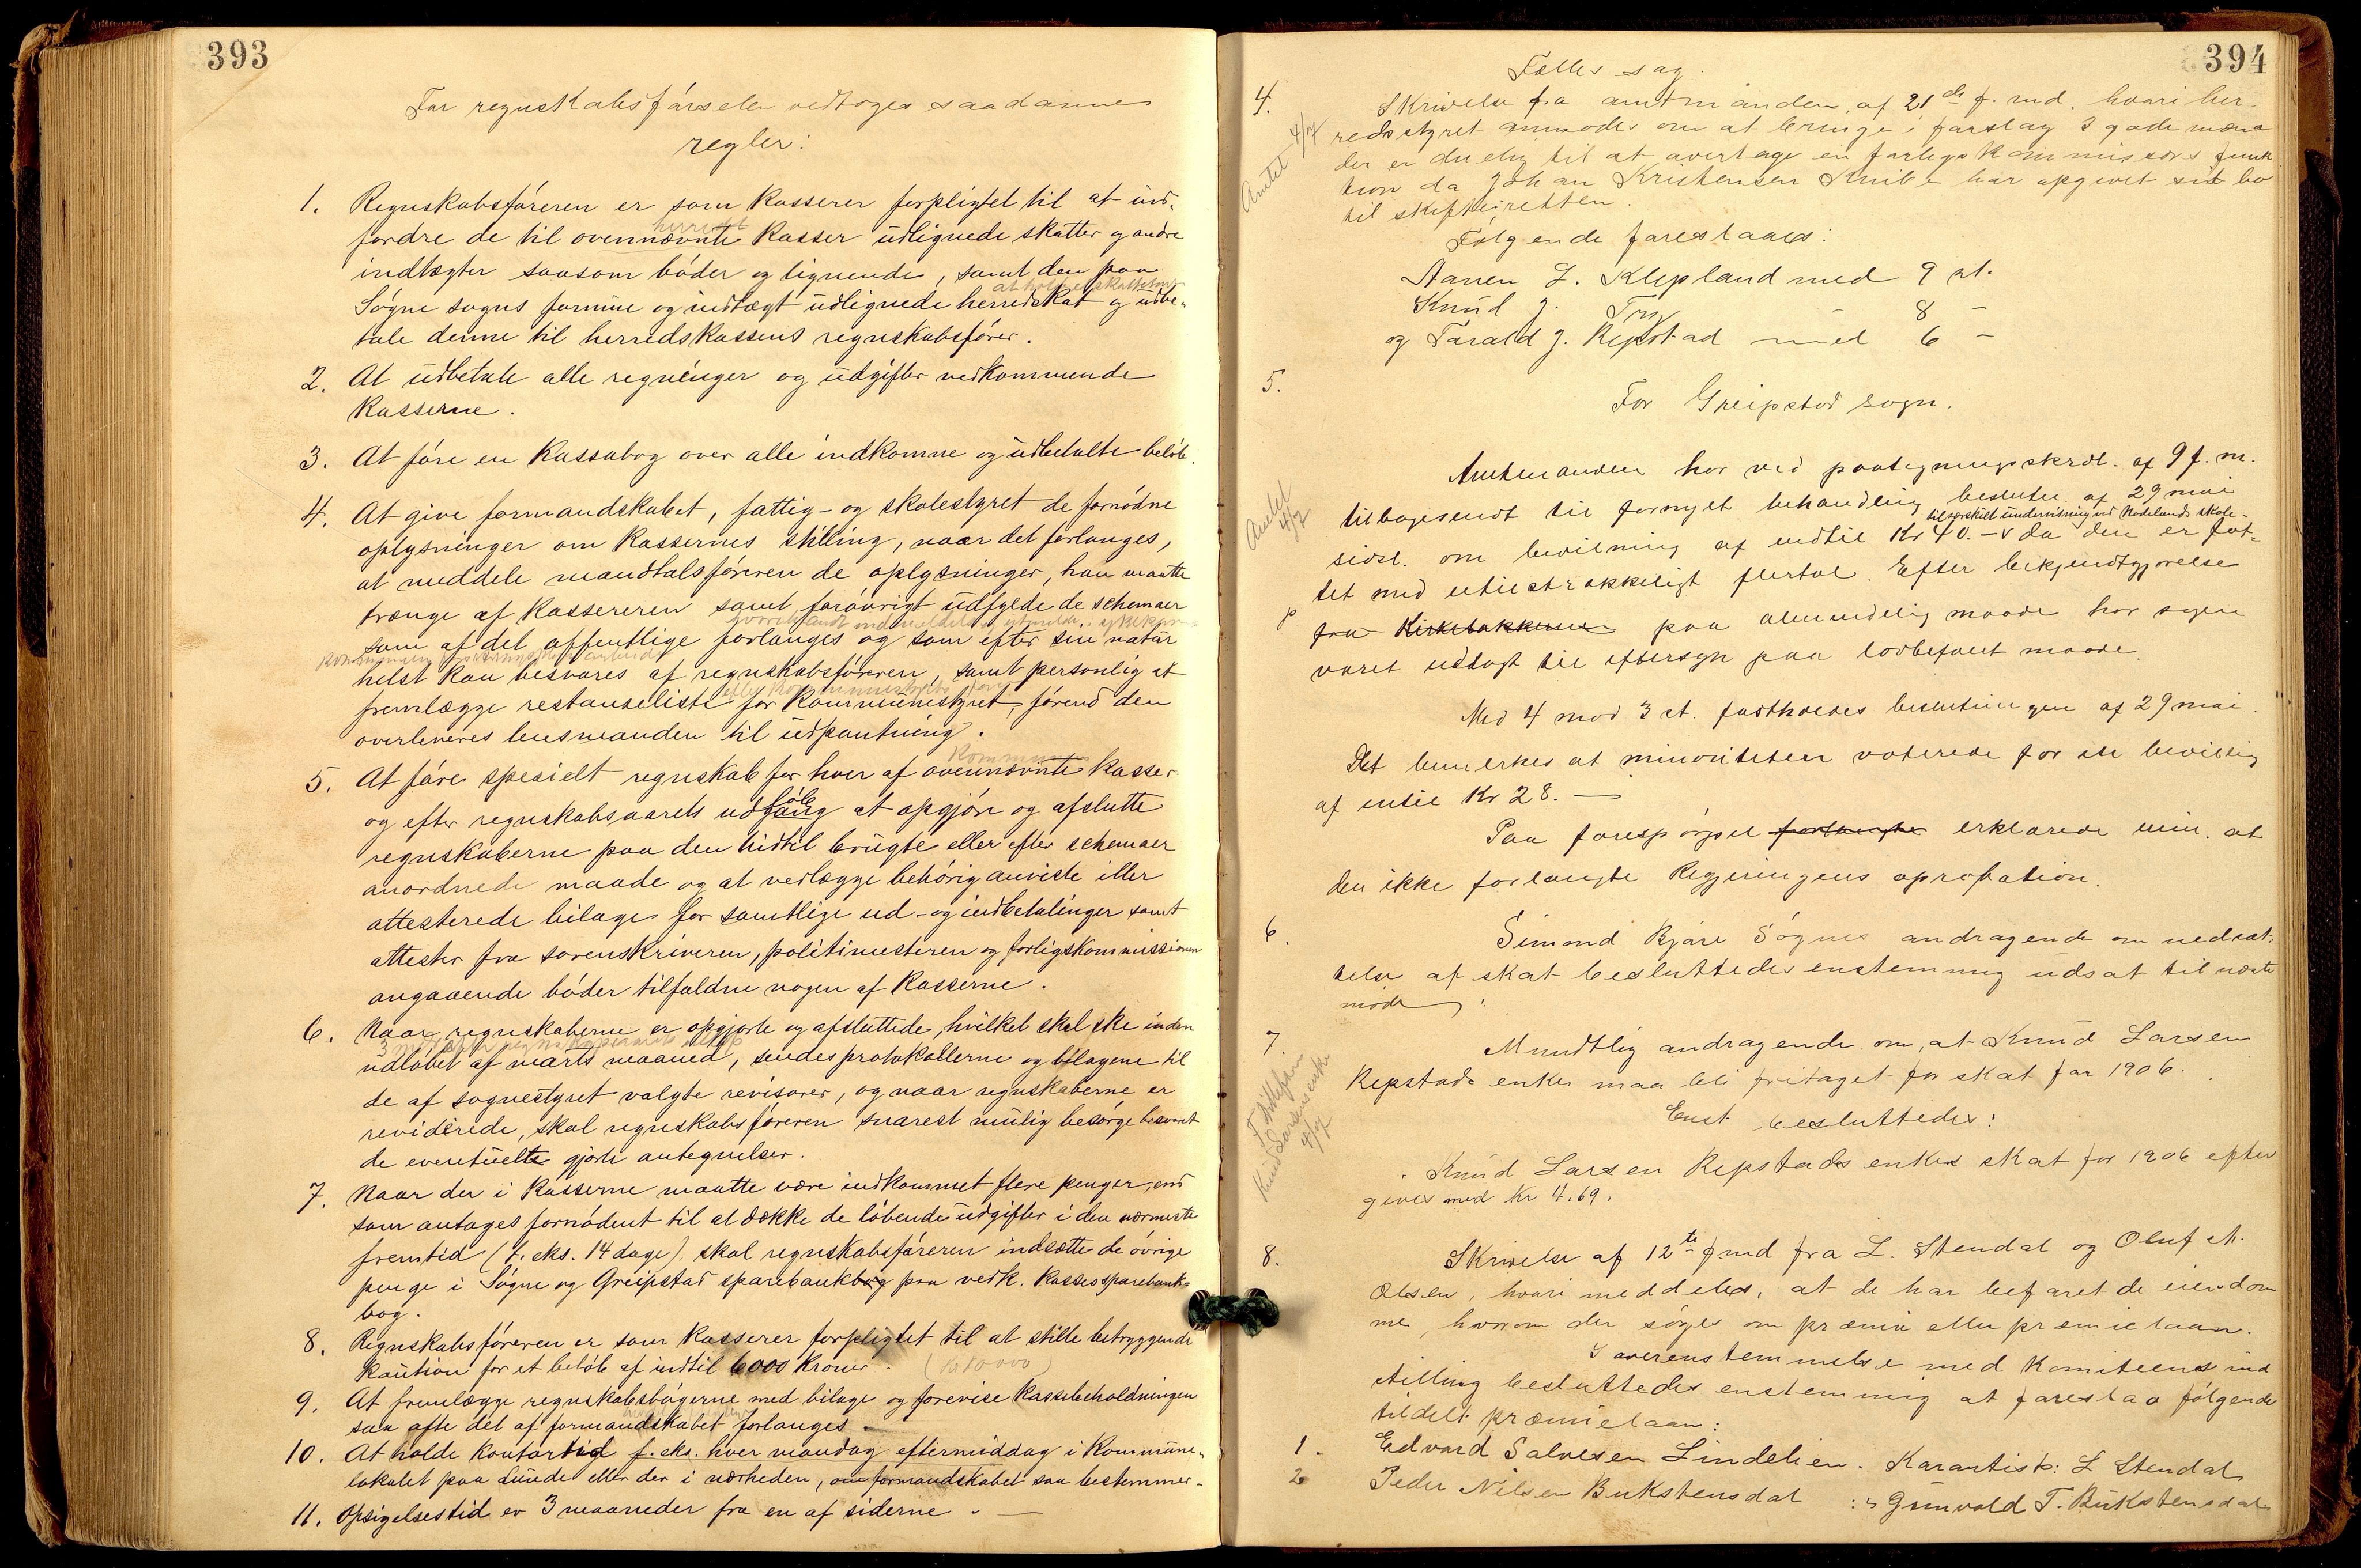 393
For regnskabsføreren vedtoges saadanne
regler:
1. Regnskabsføreren er som kasserer forpligtet til at ind-
fordre de til ovennævnte kasser udlignede skatter og andre
herredet
indtægter saasom bøder og lignende, samt den paa
Søgne sogns formue og indtægt udlignede herredskat og udbe-
tale denne til herredskassens regnskabsfører.
2. At udbetale alle regninger og udgifter vedkommende
kasserne.
3. At føre en kassabog over alle indkomne og udbetalte beløb.
4. At give formandskabet, fattig- og skolestyret de fornødne
oplysninger om kassernes stilling, naar det forlanges,
at meddele mandtalsføreren de oplysninger, han maatte
trænge af kassereren samt forøvrigt udfylde de schemaer
som af det offentlige forlanges og som efter sin natur
helst kan besvares af regnskabsføreren, samt personlig at
fremlægge restanseliste for kommunestyret, førend den
overleveres lensmanden til udpantning.
5. At føre spesielt regnskab for hver af ovennævnte kasser
kommunens
og efter regnskabsaarets udgang at opgjøre og afslutte
løb
regnskaberne paa den hidtil brugte eller efter schemaer
anordnede maade og at vedlægge behørig anviste eller
attesterede bilage for samtlige ud- og indbetalinger samt
attester fra sorenskriveren, politimesteren og forligskommissionen
angaaende bøder tilfaldne nogen af kasserne.
6. Naar regnskaberne er opgjorte og afsluttede, hvilket skal ske inden
udløbet af marts maaned, sendes protokollerne og bilagene til
de af sognestyret valgte revisorer, og naar regnskaberne er
reviderede, skal regnskabsføreren snarest mulig besørge besvaret
de eventuelte gjorte antegnelser.
7. Naar der i kasserne maatte være indkommet flere penger, end
som antages fornødent til at dække de løbende udgifter i den nærmeste
fremtid (f. eks. 14 dage), skal regnskabsføreren indsætte de øvrige
penge i Søgne og Greipstad sparebank paa vedk. kasses sparebank-
bog.
8. Regnskabsføreren er som kasserer forpligtet til at stille betryggende
kaution for et beløb af indtil 6000 kroner. (kr 10000)
9. At fremlægge regnskabsbøgerne med bilage og forevise kassebeholdningen
saa ofte det af formandskabet forlanges.
10. At holde kontortid f. eks. hver mandag eftermiddag i kommune-
lokalet paa Lunde eller der i nærheden, om formandskabet saa bestemmer.
11. Opsigelsestid er 3 maaneder fra en af siderne. —
394
Fælles sag.
4. Skrivelse fra amtmanden af 21de f. md. hvori her-
redsstyret anmodes om at bringe i forslag 3 gode mænd
der er duelig til at overtage en forligskommissærs funk
tion da Johan Kristensen Knibe har opgivet sit bo
til skifteretten.
Amtet 4/7
Følgende foreslaaes:
Aanen L. Klepland med 9 st.
Knud J. Try 8 -
og Tarald J. Repstad med 6 -
5.
For Greipstad sogn.
Amtmanden har ved paategningsskrdl. af 9 f. m.
tilbagesendt til fornyet behandling beslutn. af 29 mai
til særskilt undervisning ved Nodelands skole-
sidst. om bevilning af indtil Kr 40.- v da den er fat-
tet med utilstrækkeligt flertal. Efter bekjendtgjørelse
fra Kirkebakkerne paa almindelig maade har sagen
været udlagt til eftersyn paa lovbefalet maade.
Amtet 4/7
Med 4 mod 3 st. fastholdes beslutningen af 29 mai.
Det bemerkes at minoriteten voterede for en bevillig
af indtil Kr 28. —
Paa forespørgsel forlangte erklærede min. at
den ikke forlangte Regjeringens aprobation.
6. Simond Bjåre Søgnes andragende om nedsæt-
telse af skat besluttedes enstemmig udsat til næste
møde.
7. Mundtlig andragende om, at Knud Larsen
Repstads enke maa bli fritaget for skat for 1906.
Enst. besluttedes:
Knud Larsen Repstads enkes skat for 1906 efter
gives med Kr 4.69.
8. Skrivelse af 12te f md fra L. Stendal og Oluf A.
Olsen, hvori meddeles, at de har befaret de eiendom
me, hvorom der søges om præmie eller præmielaan.
I overenstemmelse med komiteens ind
stilling besluttedes enstemmig at foreslaa følgende
tildelt præmielaan:
1. Edvard Salvesen Lindelien. Karantist: L Stendal
2 Peder Nilsen Bukstensdal : " Gunvald T. Bukstensdal